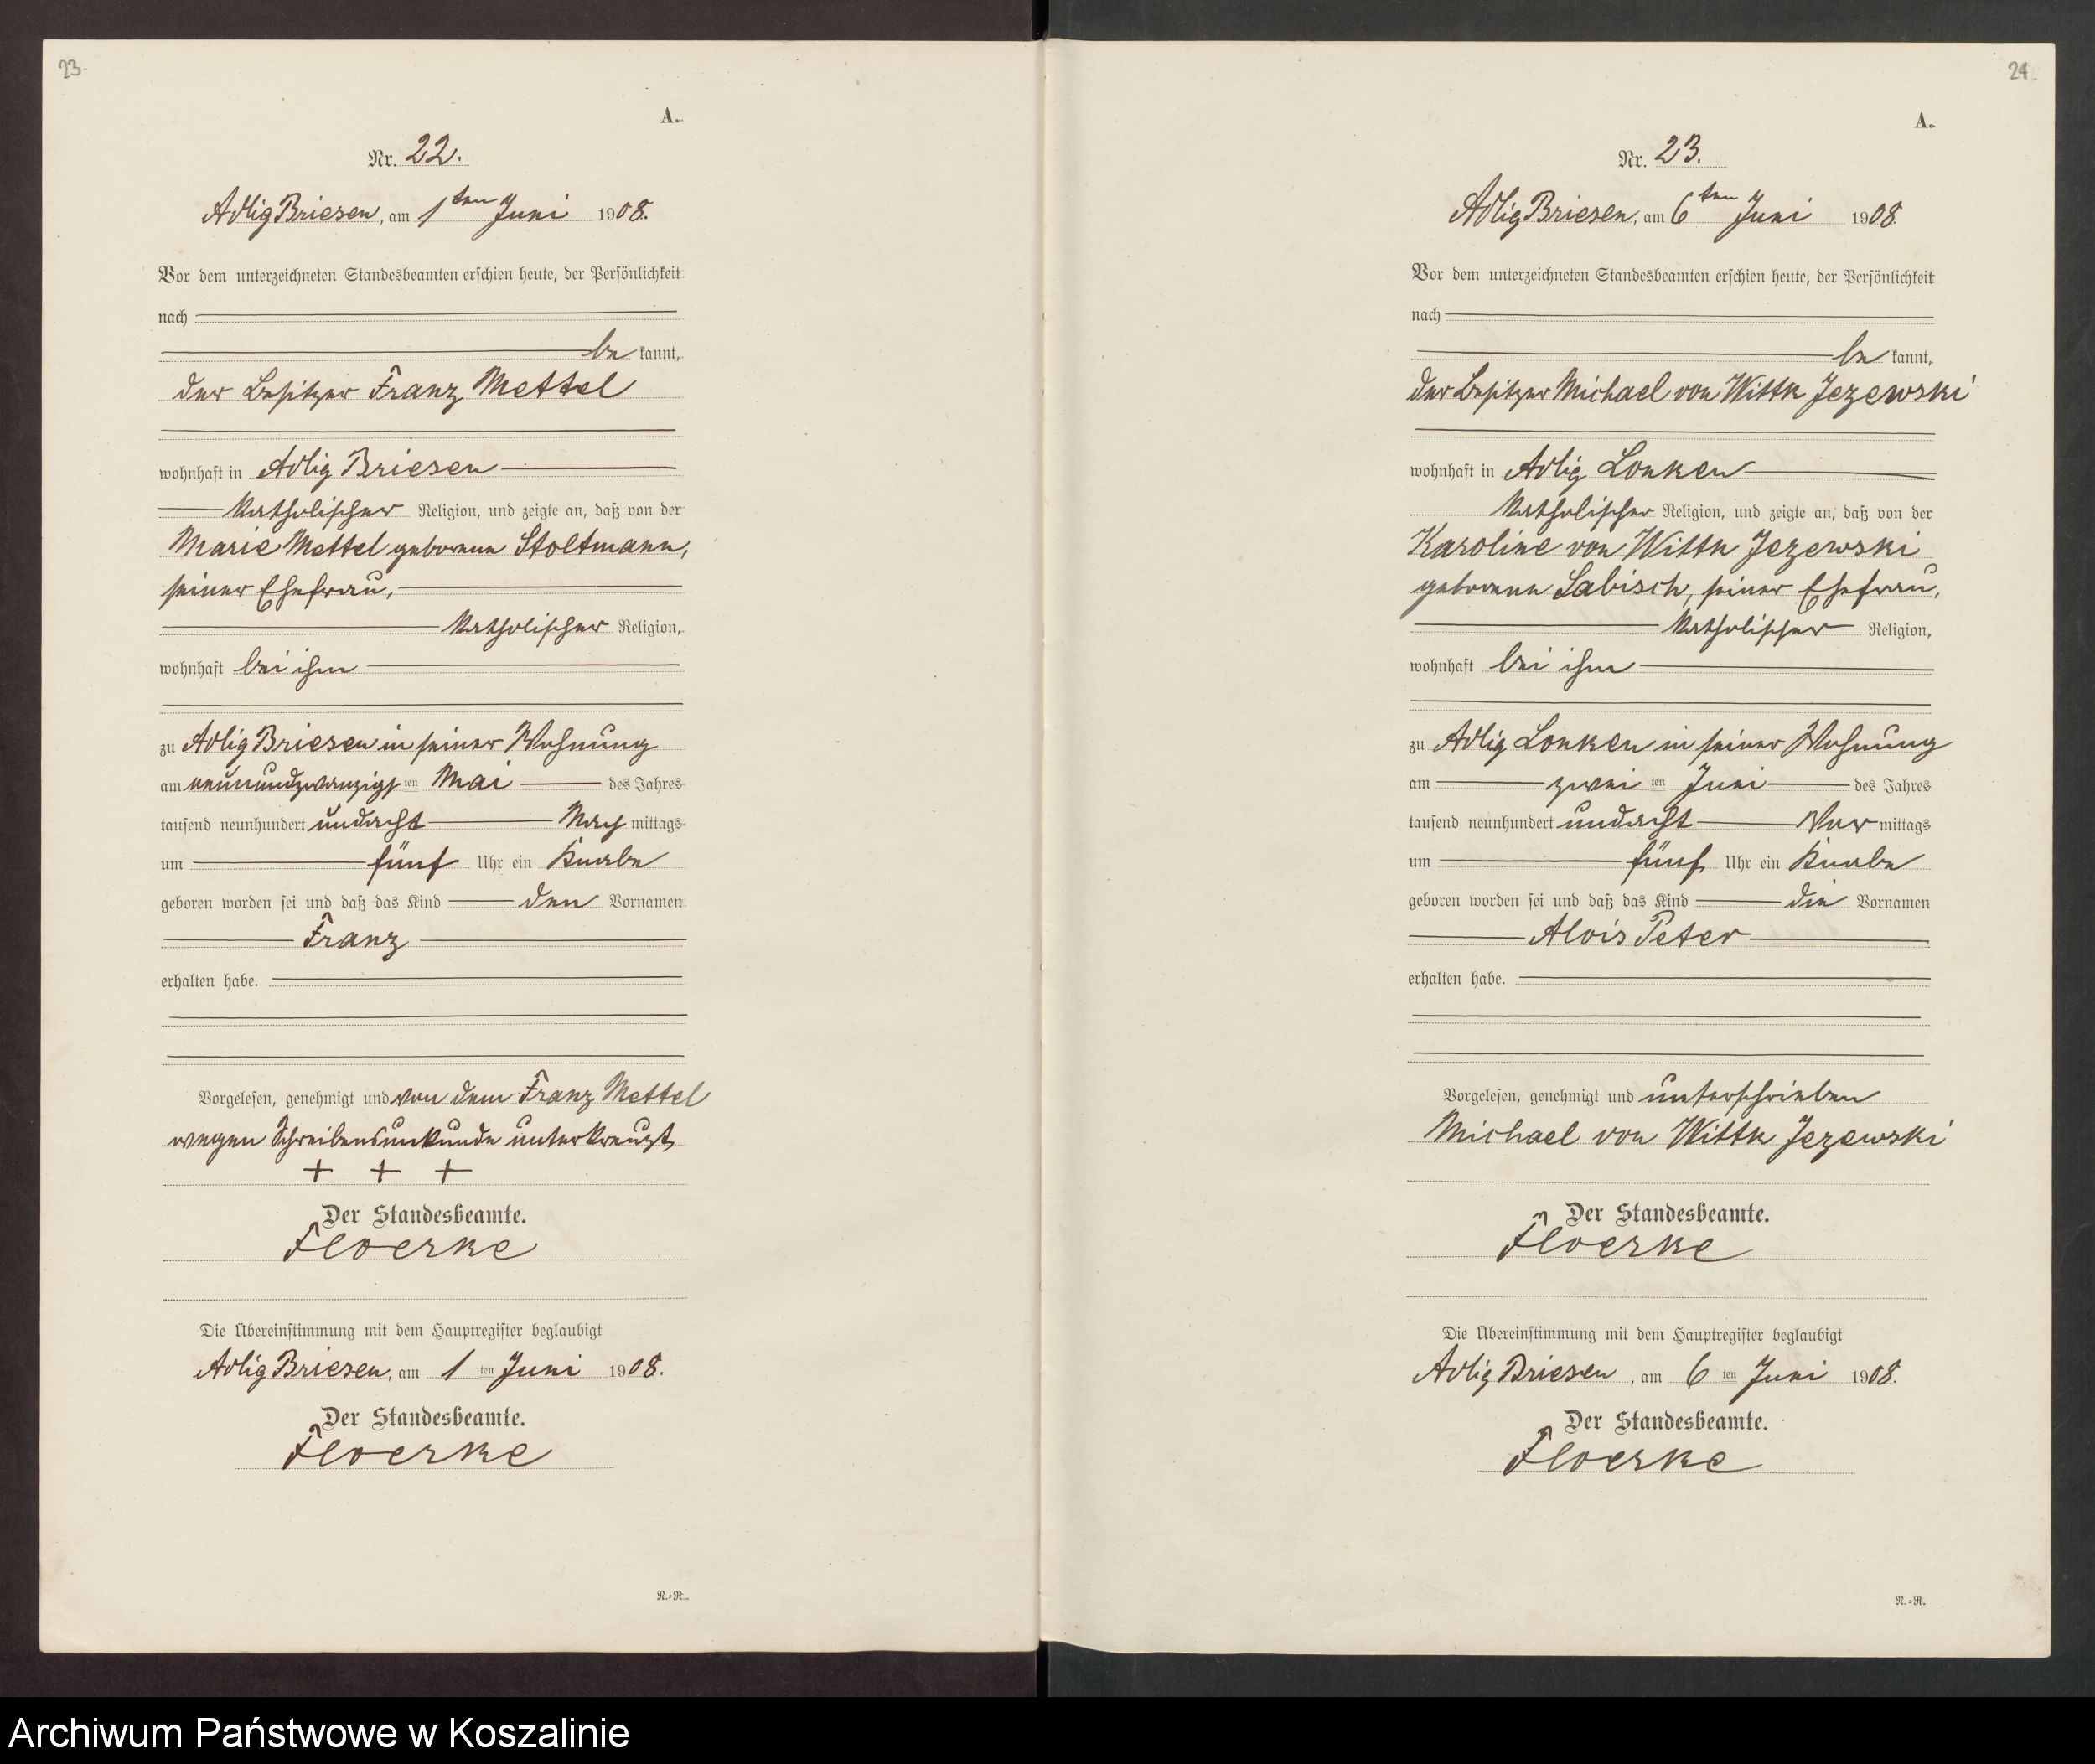 23
A.
Nr. 22.
Adlig Briesen, am 1ten Juni 1908.
Vor dem unterzeichneten Standesbeamten erschien heute, der Persönlichkeit
nach
be kannt,
der Besitzer Franz Mettel
wohnhaft in Adlig Briesen
katholischer Religion, und zeigte an, daß von der
Marie Mettel geborene Stoltmann,
seiner Ehefrau,
katholischer Religion,
wohnhaft bei ihm
zu Adlig Briesen in seiner Wohnung
am neunundzwanzigsten Mai des Jahres
tausend neunhundert undacht Nach mittags
um fünf Uhr ein Knabe
geboren worden sei und daß das Kind den Vornamen
Franz
erhalten habe.
Vorgelesen, genehmigt und von dem Franz Mettel
wegen Schreibensunkunde unterkreuzt
+ + +
Der Standesbeamte.
Floerke
Die Übereinstimmung mit dem Hauptregister beglaubigt
Adlig Briesen, am 1 ten Juni 1908.
Der Standesbeamte.
Floerke
N.=R.
24.
A.
Nr. 23.
Adlig Briesen, am 6ten Juni 1908.
Vor dem unterzeichneten Standesbeamten erschien heute, der Persönlichkeit
nach
be kannt,
der Besitzer Michael von Wittk Jezewski
wohnhaft in Adlig Lonken
katholischer Religion, und zeigte an, daß von der
Karoline von Wittk Jezewski
geborene Sabisch, seiner Ehefrau,
katholischer Religion,
wohnhaft bei ihm
zu Adlig Lonken in seiner Wohnung
am zwei ten Juni des Jahres
tausend neunhundert undacht Vor mittags
um fünf Uhr ein Knabe
geboren worden sei und daß das Kind die Vornamen
Alois Peter
erhalten habe.
Vorgelesen, genehmigt und unterschrieben
Michael von Wittk Jezewski
Der Standesbeamte.
Floerke
Die Übereinstimmung mit dem Hauptregister beglaubigt
Adlig Briesen, am 6 ten Juni 1908.
Der Standesbeamte.
Floerke
N.=R.
Archiwum Państwowe w Koszalinie